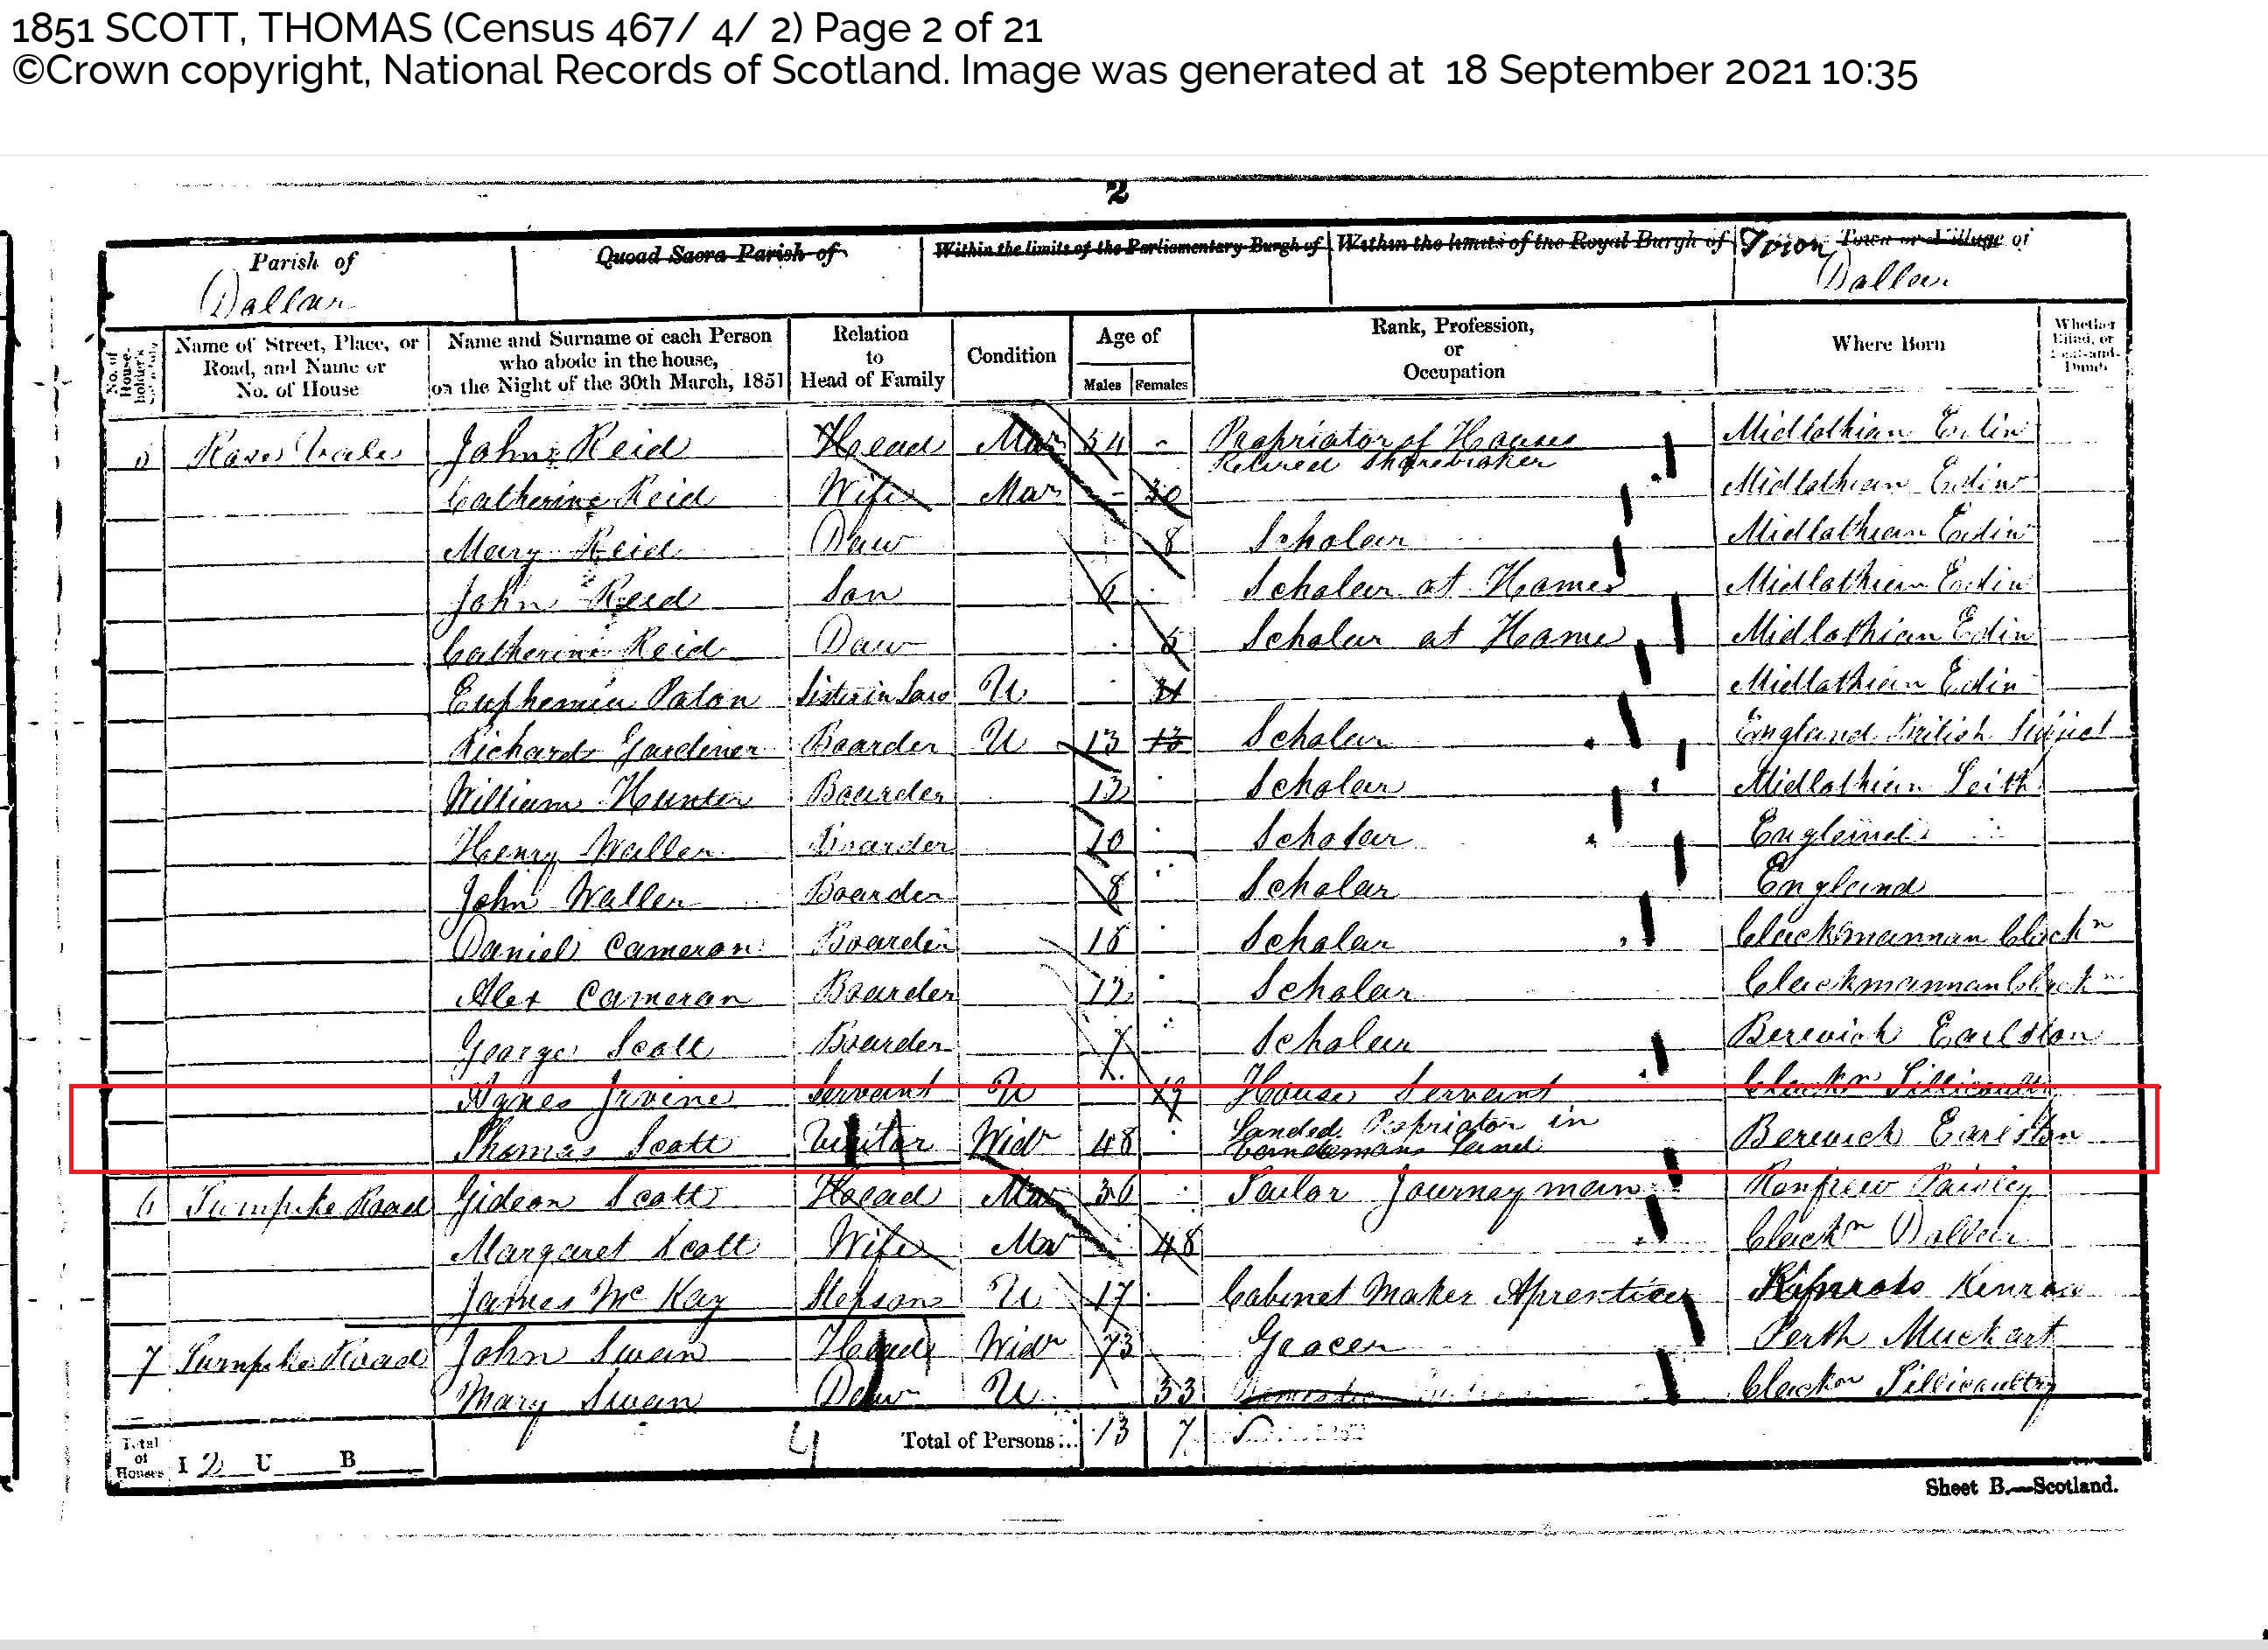 1851 SCOTT, THOMAS (Census 467/ 4/ 2) Page 2 of 21
©Crown copyright, National Records of Scotland. Image was generated at 18 September 2021 10:35
2
Parish of Quoad Sacra Parish of Within the limits of the Parliamentary Burgh of Within the limits of the Royal Burgh of Town or Village of
Dollar Dollar
No. of House-holder's Name of Street, Place, or Road, and Name or No. of House Name and Surname of each Person who abode in the house, on the Night of the 30th March, 1851 Relation to Head of Family Condition Age of Males Females Rank, Profession, or Occupation Where Born Whether Blind, or Deaf-and-Dumb
John Reid Head Mar 54 - Proprietor of Houses Midlothian Edin
Retired Sharebroker
Catherine Reid Wife Mar - 30 Midlothian Edin
Mary Reid Daur 8 Scholar Midlothian Edin
John Reid Son 6 Scholar at Home Midlothian Edin
Catherine Reid Daur 5 Scholar at Home Midlothian Edin
Euphemia Paton Sister in Law U 31 Midlothian Edin
Richard Gardiner Boarder U 13 13 Scholar England British Subject
William Hunter Boarder 13 Scholar Midlothian Leith
Henry Waller Boarder 10 Scholar England
John Waller Boarder 8 Scholar England
Daniel Cameron Boarder Scholar Clackmannan Clackn
Alex Cameron Boarder 12 Scholar Clackmannan Clackn
George Scott Boarder 7 Scholar Berwick Earlston
Agnes Irvine Servant U 19 House Servant Clackn Tillicoultry
Thomas Scott Visitor Widr 48 Landed Propriator in Berwick Earlston
Land
6 Turnpike Road Gideon Scott Head Mar 36 Tailor Journeyman Renfrew Paisley
Margaret Scott Wife Mar 48 Clackn Dollar
James McKay Stepson U 17 Cabinet Maker Aprentice Kinross Kinross
7 Turnpike Road John Swan Head Widr 73 Grocer Perth Muckart
Mary Swan Daur U 33 Clackn Tillicoultry
Total of Houses I 2 U B 4 Total of Persons... 13 7
Sheet B.—Scotland.